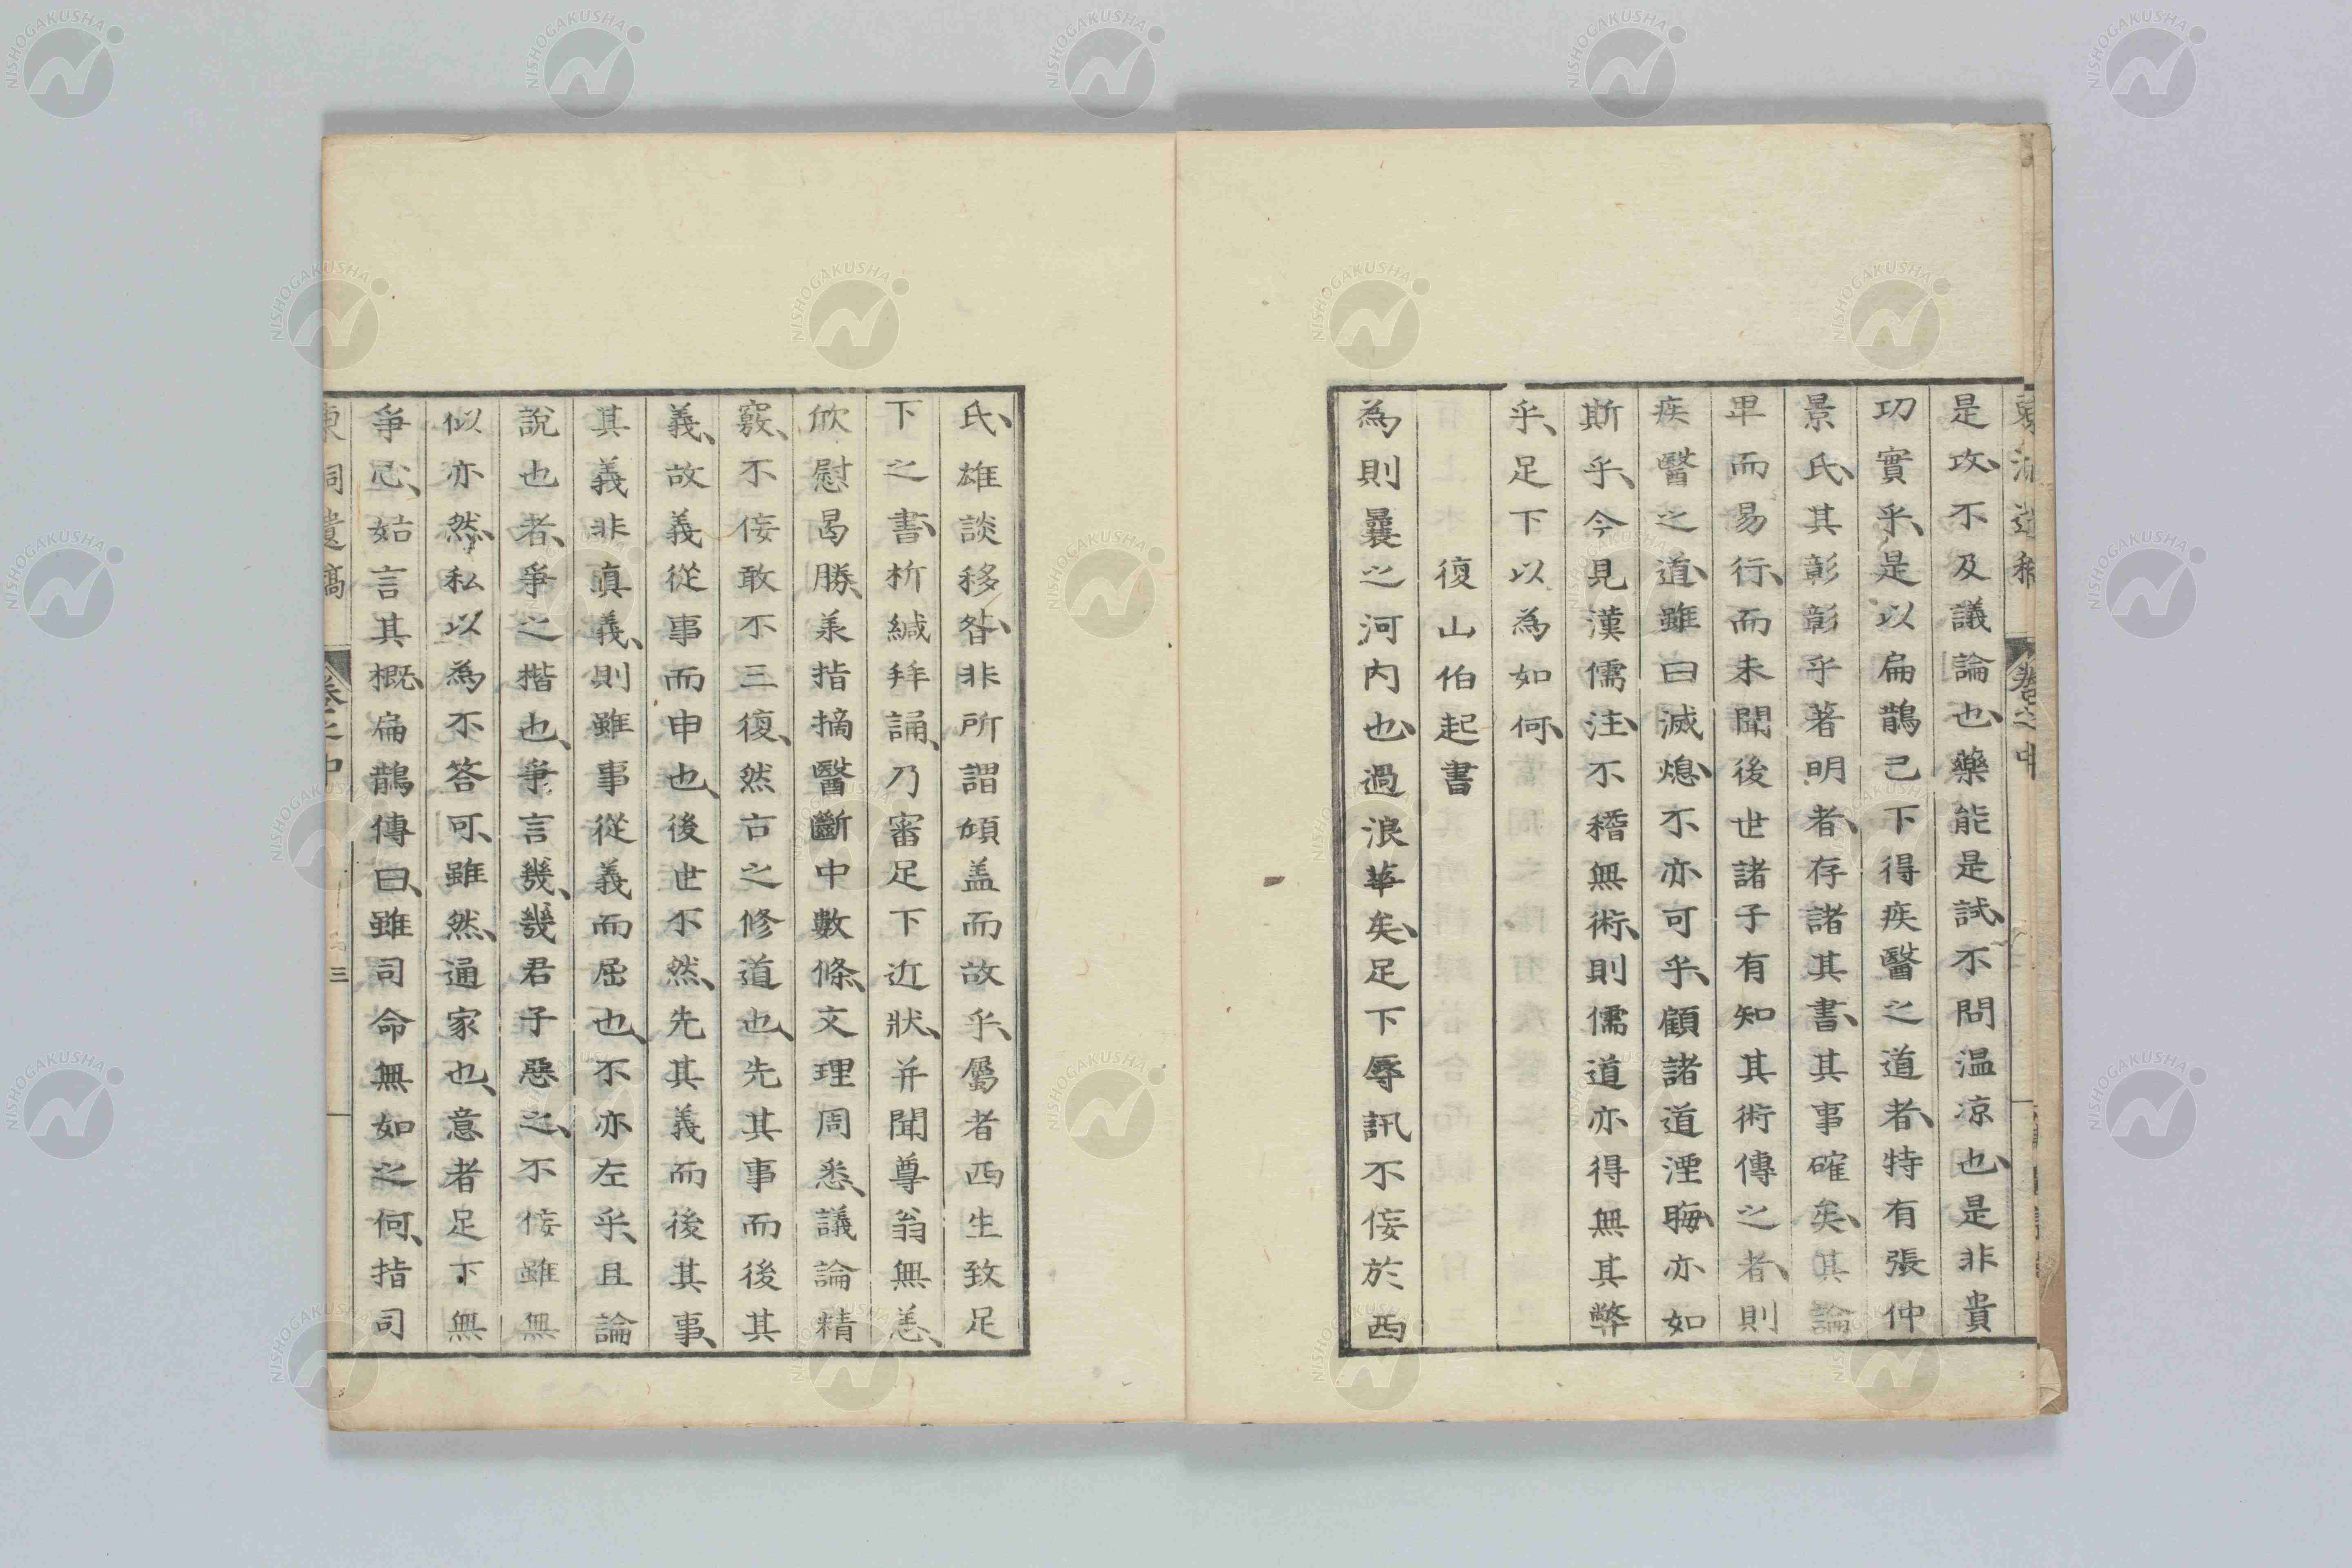 是攻、不及議論也、藥能是試、不問温凉也、是非貴
功實乎、是以扁鵲已下得疾醫之道者、特有張仲
景氏、其彰彰乎著明者、存諸其書、其事確矣、其論
卑而易行、而未聞後世諸子有知其術傳之者、則
疾醫之道、雖曰滅熄、不亦可乎、顧諸道湮晦、亦如
斯乎、今見漢儒注、不稽無術、則儒道亦得無其弊
乎、足下以為如何、
復山伯起書
為則曩之河内也、過浪華矣、足下辱訊不佞於西
氏、雄談移晷、非所謂傾盖而故乎、屬者西生致足
下之書、析緘拜誦、乃審足下近狀、并聞尊翁無恙、
欣慰曷勝、羕指摘醫斷中數條、文理周悉、議論精
竅、不佞敢不三復、然古之修道也、先其事而後其
義、故義從事而申也、後世不然、先其義而後其事、
其義非真義、則雖事從義而屈也、不亦左乎、且論
說也者、爭之楷也、爭言幾、幾君子惡之、不佞雖無
似亦然、私以為不答可、雖然、通家也、意者足下無
爭忌、姑言其概、扁鵲傳曰、雖司命無如之何、指司
東洞遺稿 卷之中 三
NISHOGAKUSHA